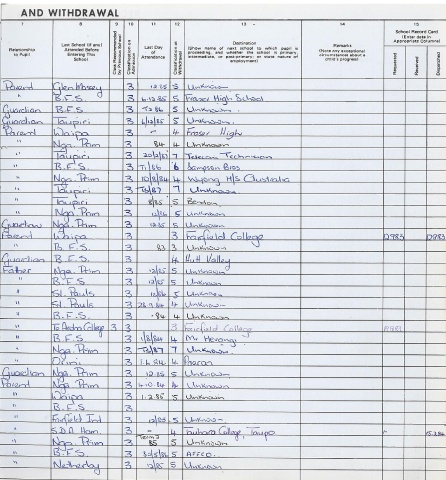 AND WITHDRAWAL
7 8 9 10 11 12 13 14 15
Relationship to Pupil Last School (if any) Attended Before Entering This School Class Recommended by Previous School Classification on Admission Last Day of Attendance Classification at Withdrawal Destination (Show name of next school to which pupil is proceeding, and whether the school is primary, intermediate, or post-primary: or state nature of employment) Remarks (Insert any exceptional circumstances about a child's progress) School Record Card (Enter date in Appropriate Column) Requested Received Despatched
Parent Glen Massey 3 12.85 5 Unknown
" B.F.S. 3 6.12.85 5 Fraser High School
Guardian B.F.S. 3 5 Unknown
Guardian Taupiri 3 6/12/85 5 Unknown.
Parent Waipa 3 - 4 Fraser High
" Nga. Prim 3 84 4 Unknown
" Taupiri 3 20/2/87 7 Telecom Technician
" B.F.S. 3 6 Sampson Bros
" Nga. Prim 3 10/8/84 4 Wyong H/S Australia
" Taupiri 3 7 Unknown
" Taupiri 3 8/85 5
" Nga. Prim 3 5 Unknown
Guardian Nga. Prim 3 12.85 5 Unknown
Parent Waipa 3 3 Fairfield College 0983 0983
" B.F.S. 3 83 3 Unknown
Guardian B.F.S. 3 4 Hutt Valley
Father Nga. Prim 3 12/85 5 Unknown
" B.F.S 3 12/85 5 Unknown
" St. Pauls 3 5 Unknown
" St. Pauls 3 4 Unknown
" B.F.S. 3 -84 4 Unknown
" College 3 3 3 Fairfield College
" B.F.S. 3 1/8/84 4 Mr
" Nga. Prim 3 7 Unknown.
" 3 4
Guardian Nga. Prim 3 12.85 5 Unknown
Parent Nga. Prim 3 4.10.84 4 Unknown
" Waipa 3 1.2.85 5 Unknown
" B.F.S 3
" Fairfield Int 3 12/85 5 Unknown
" S.D.A. Ham. 3 - 4 Tauhara College, Taupo 15.2.84
" Nga. Prim 3 Term 3 85 5 Unknown
" B.F.S. 3 30/5/85 5 AFFCO.
" Netherby 3 12/85 5 Unknown